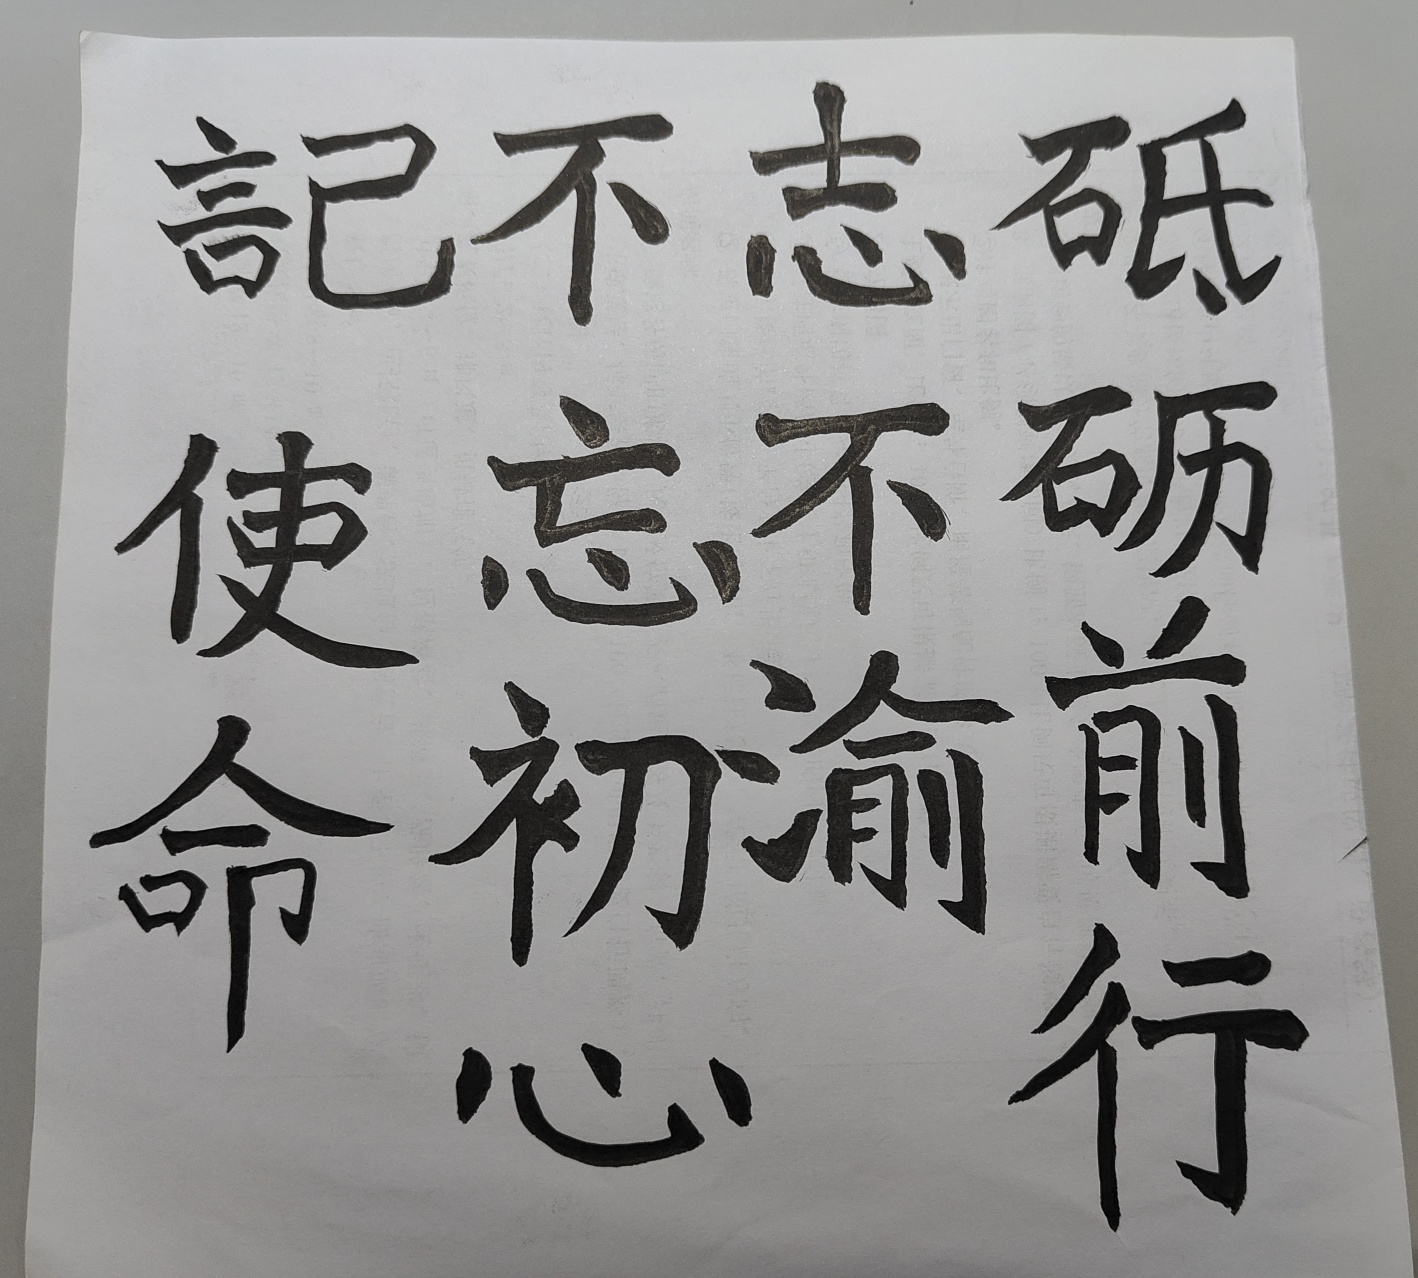 砥砺前行
志不渝
不忘初心
記使命